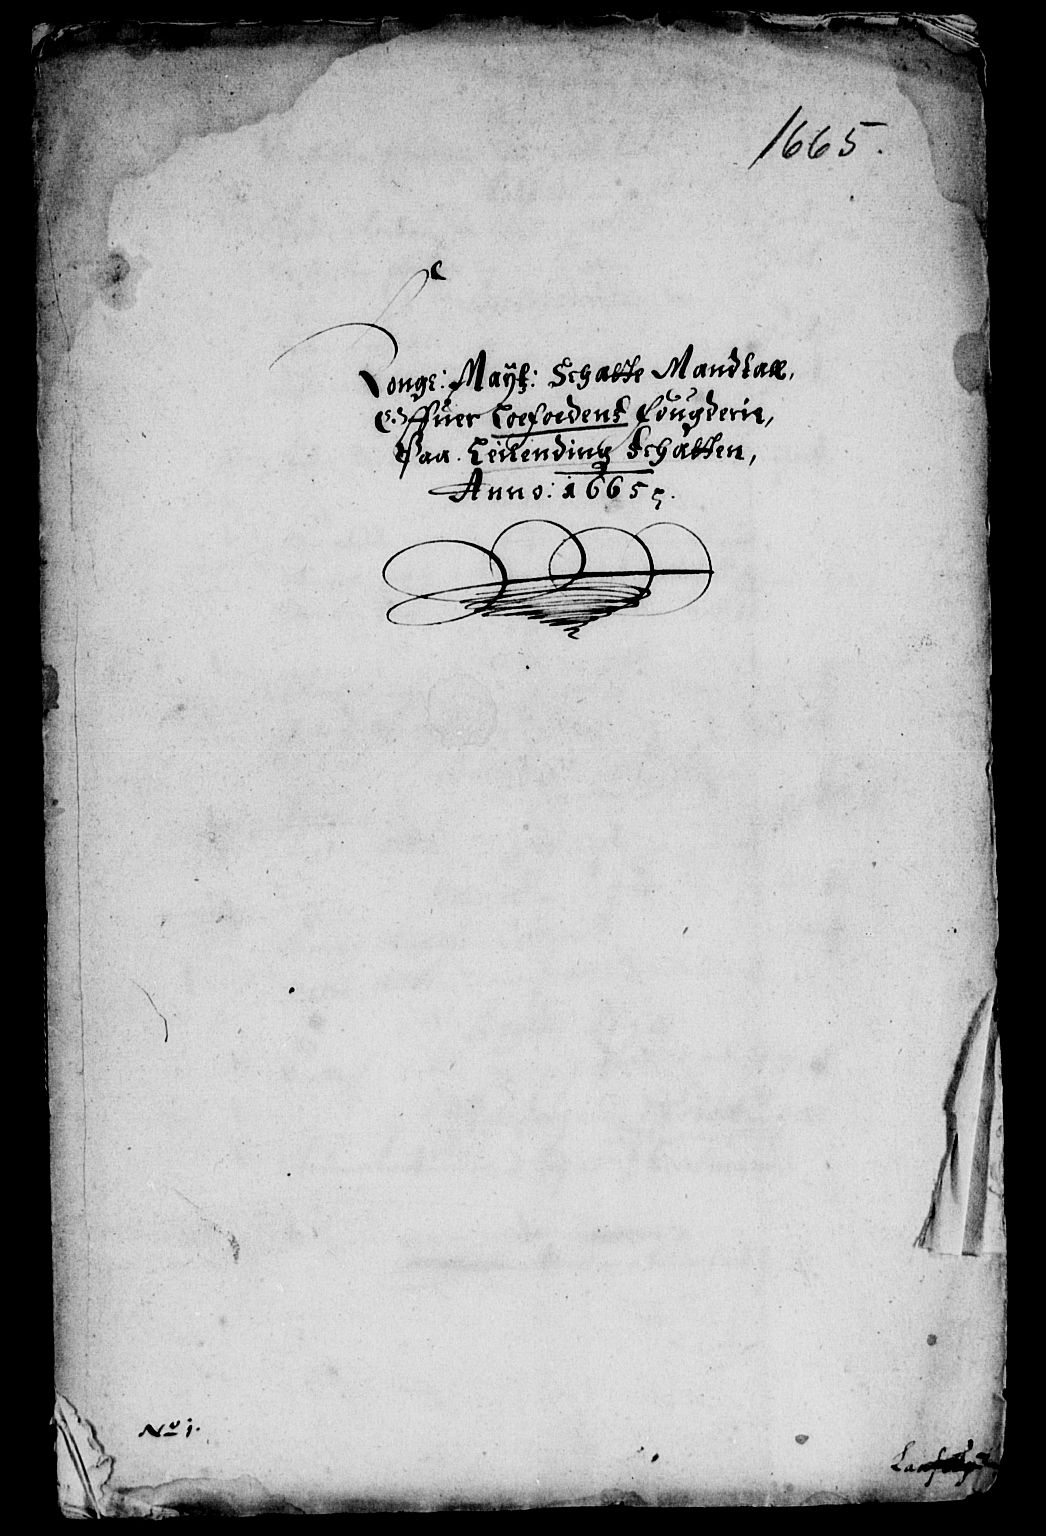 1665.
Konge: Mayt: Schatte Mandtall,
Offuer Loefoedens Fougderie,
Paa Leilending Schatten,
Anno: 1665
No 1.